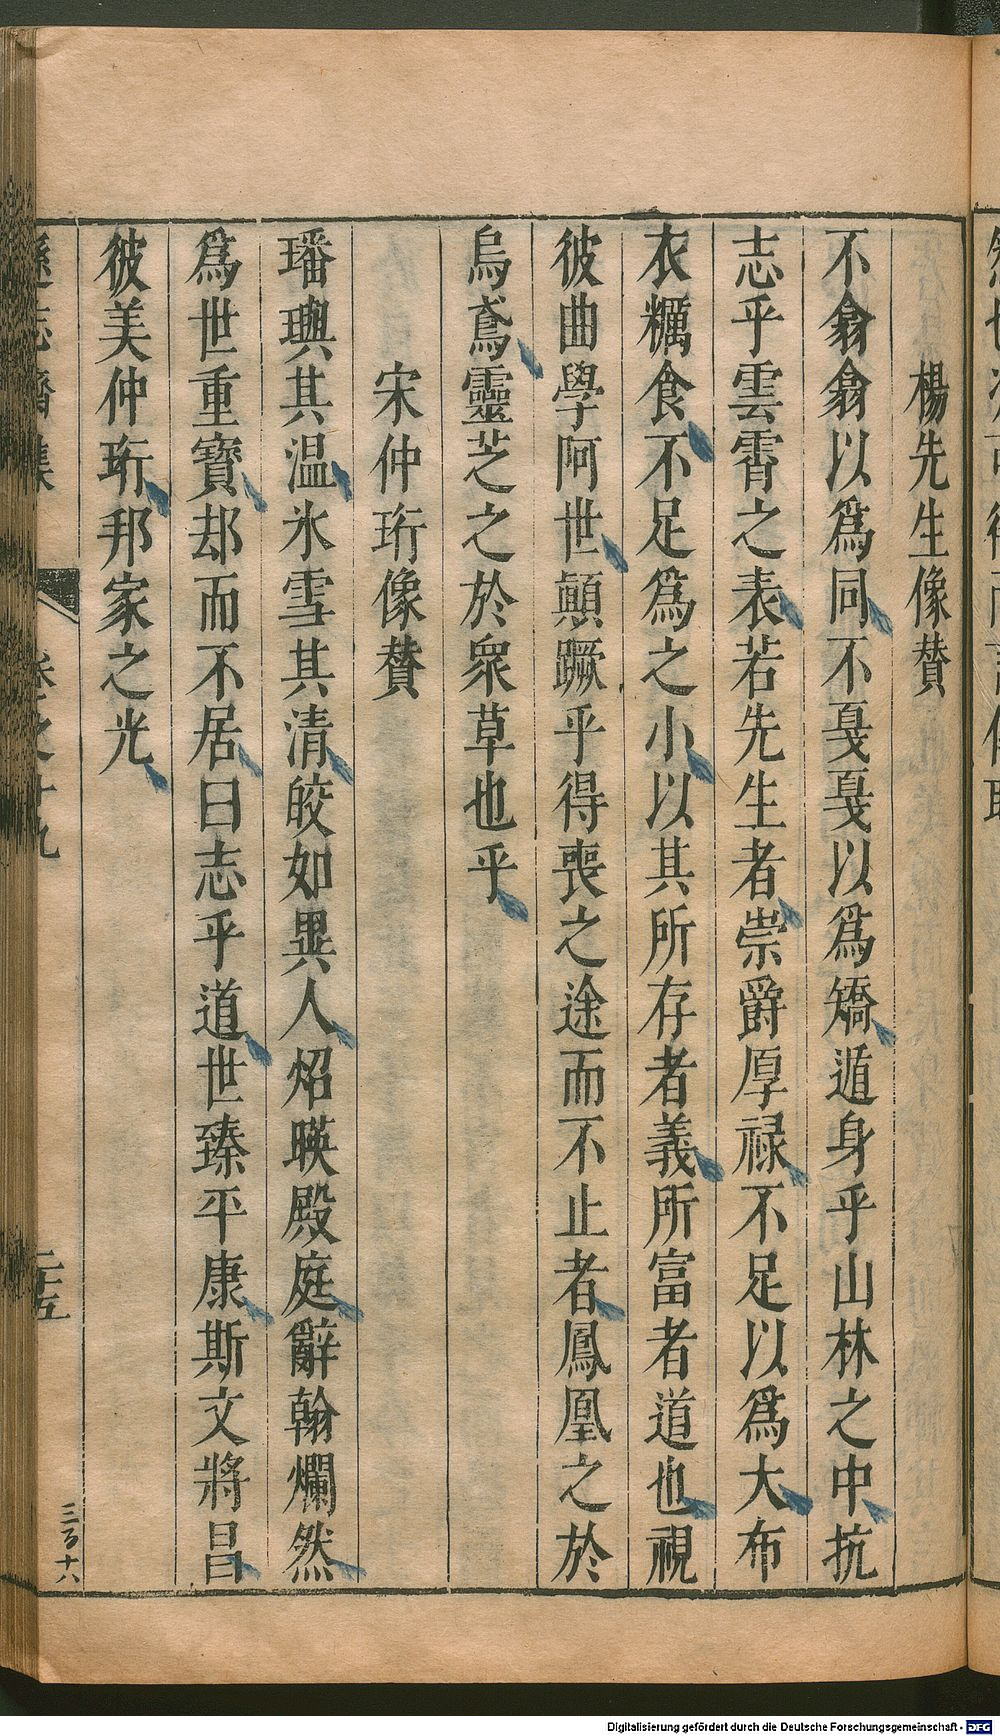 楊先生像賛
不翕翕以爲同不戞戞以爲矯遁身乎山林之中抗
志乎雲霄之表若先生者崇爵厚禄不足以爲大布
衣糲食不足爲之小以其所存者義所富者道也視
彼曲學阿世顚蹶乎得喪之途而不止者鳳凰之於
烏鳶靈芝之於衆草也乎
宋仲珩像賛
璠璵其温氷雪其清皎如異人炤暎殿庭辭翰爛然
爲世重寳却而不居曰志乎道世臻平康斯文將昌
彼美仲珩邦家之光
遜志齋集
卷之十九
二十五
三百十六
Digitalisierung gefördert durch die Deutsche Forschungsgemeinschaft - DFG